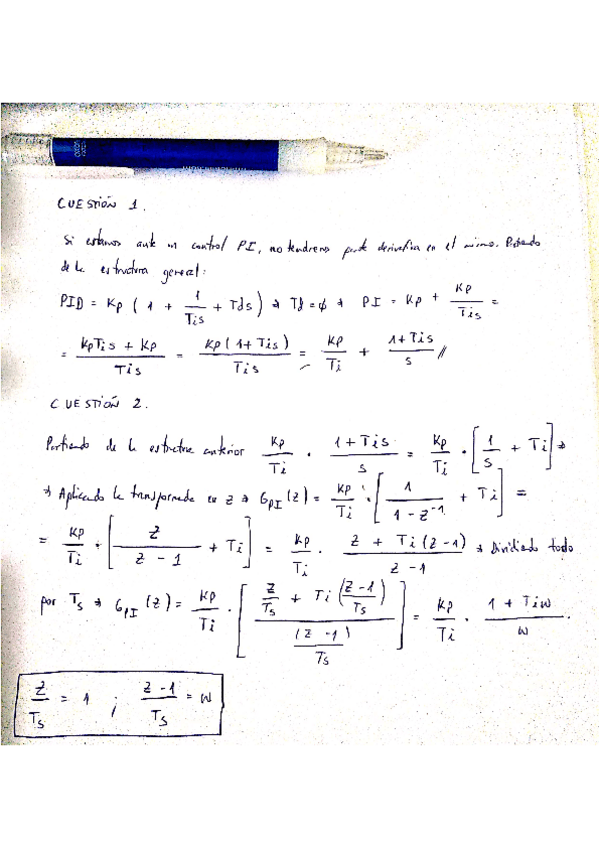 CUESTIÓN 1.
Si estamos ante un control PI, no tendremos parte derivativa en el mismo. Partiendo
de la estructura general:
PID = Kp ( 1 + 1/Tis + Tds ) → Td = ϕ → PI = Kp + Kp/Tis =
= (KpTis + Kp)/Tis = Kp(1+Tis)/Tis = Kp/Ti + (1+Tis)/s //
CUESTIÓN 2.
Partiendo de la estructura anterior Kp/Ti · (1+Tis)/s = Kp/Ti · [1/s + Ti] →
→ Aplicando la transformada en z → GPI(z) = Kp/Ti · [1/(1-z^-1) + Ti] =
= Kp/Ti · [z/(z-1) + Ti] = Kp/Ti · (z + Ti(z-1))/(z-1) → Dividiendo todo
por Ts → GPI(z) = Kp/Ti · [(z/Ts + Ti((z-1)/Ts))/((z-1)/Ts)] = Kp/Ti · (1+Tiw)/w.
z/Ts = 1 ; (z-1)/Ts = w